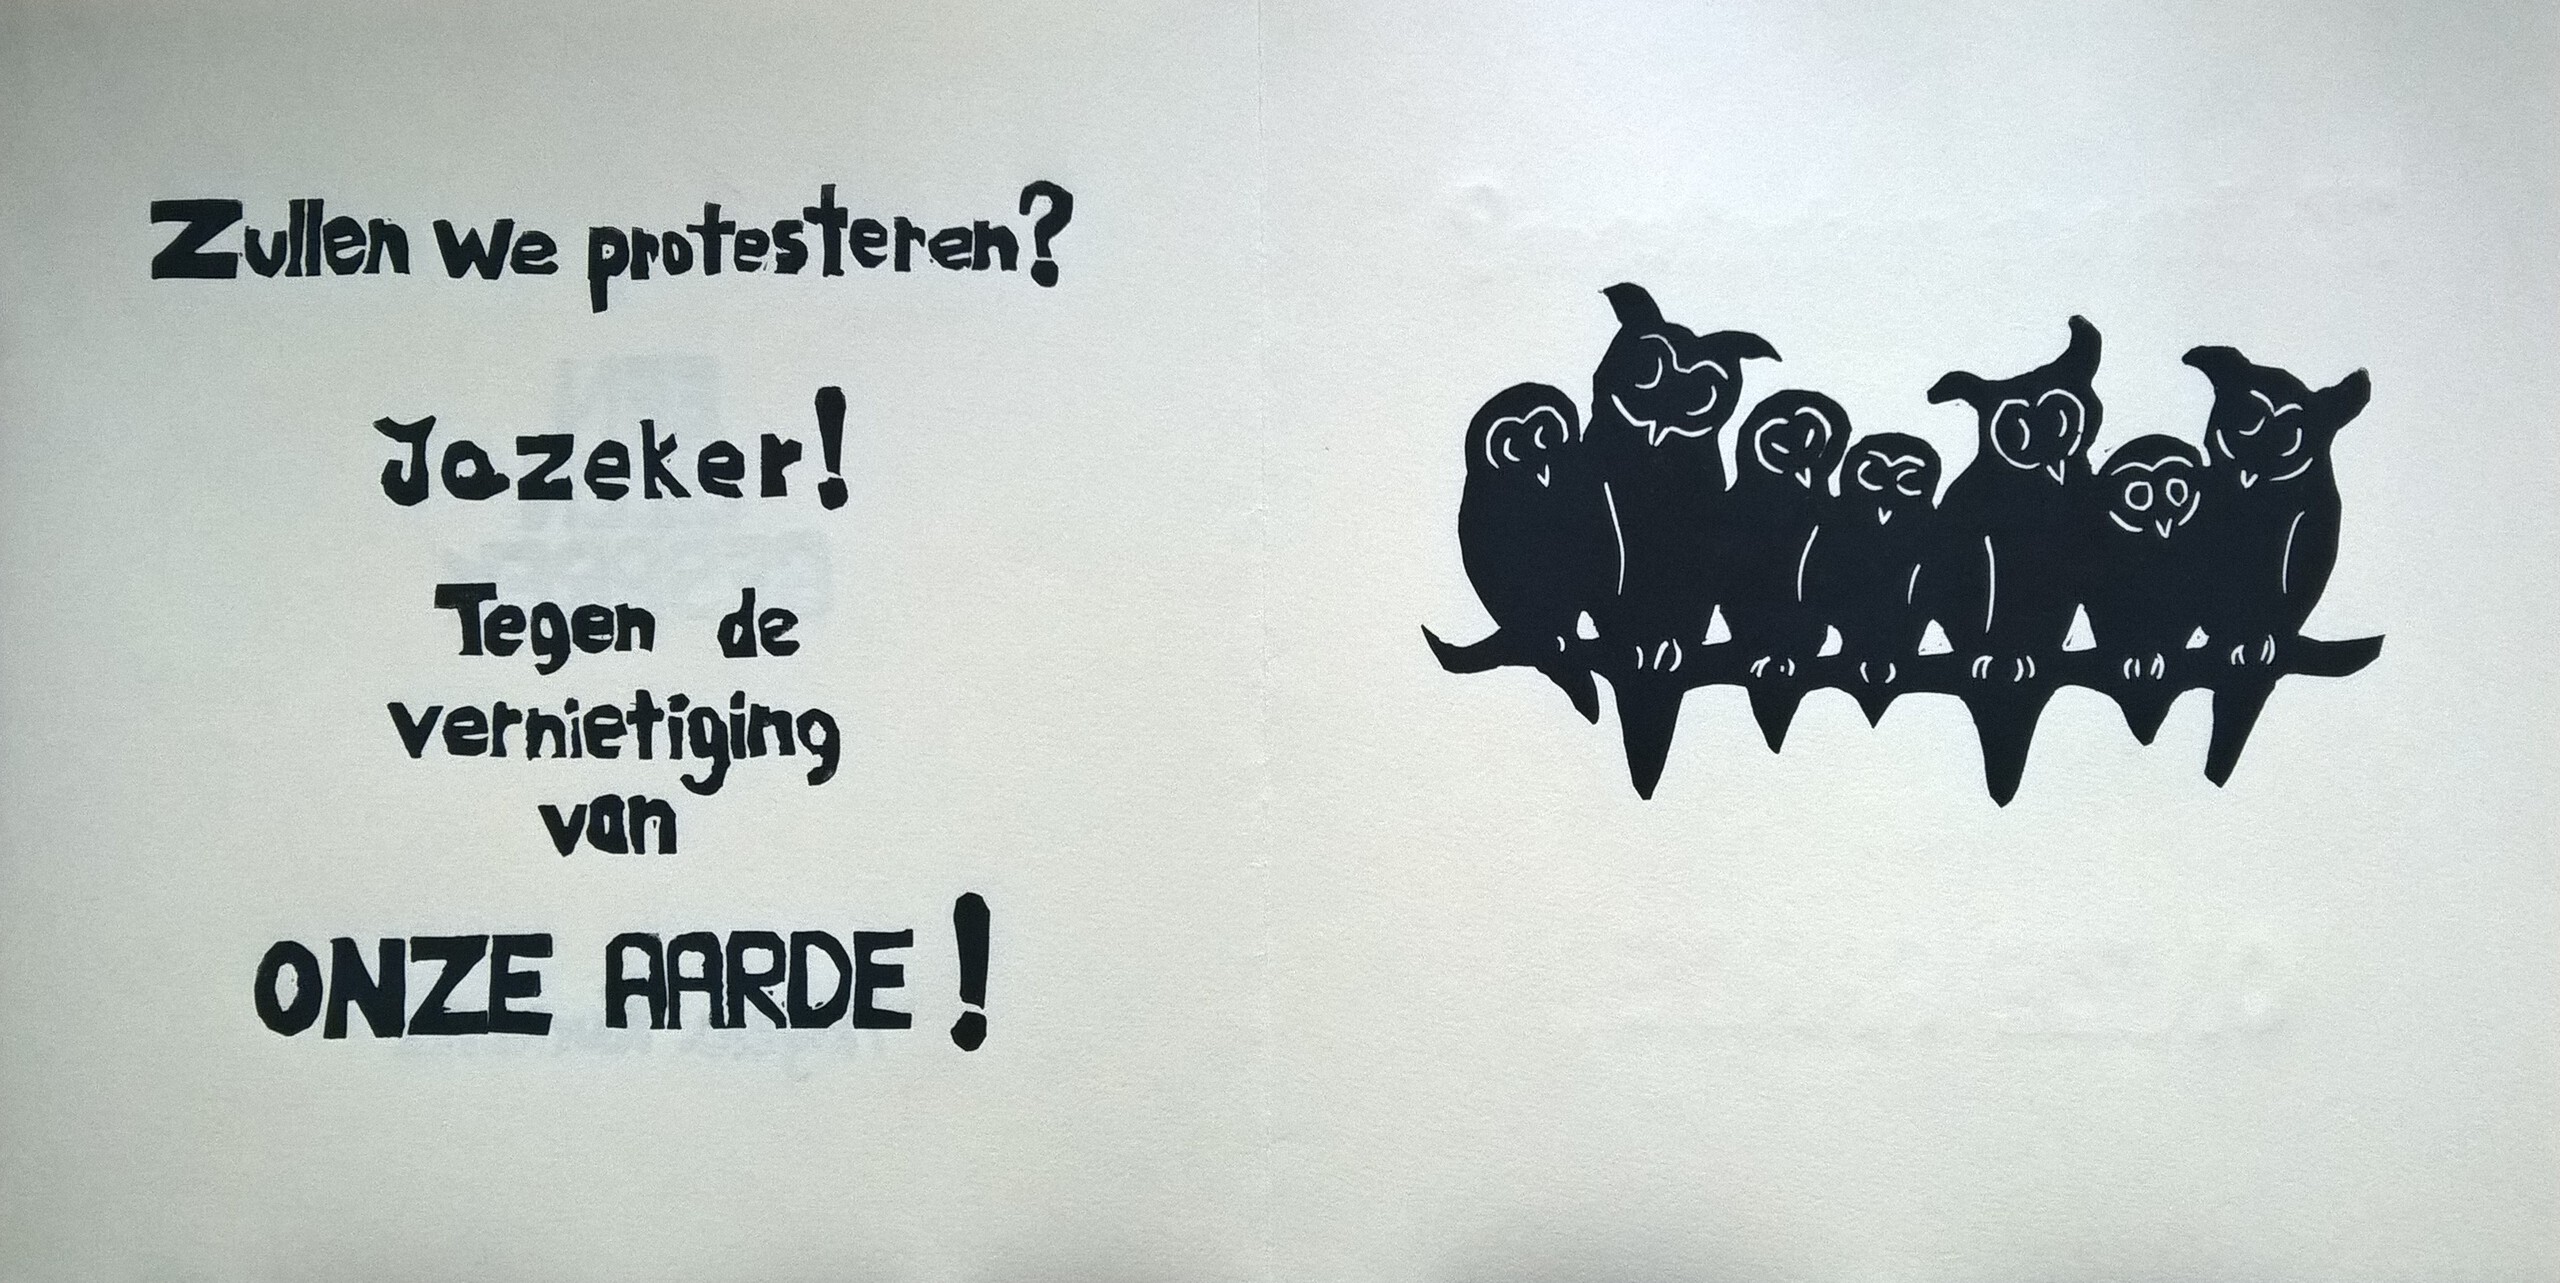 Zullen we protesteren?
Jazeker!
Tegen de
vernietiging
van
ONZE AARDE!